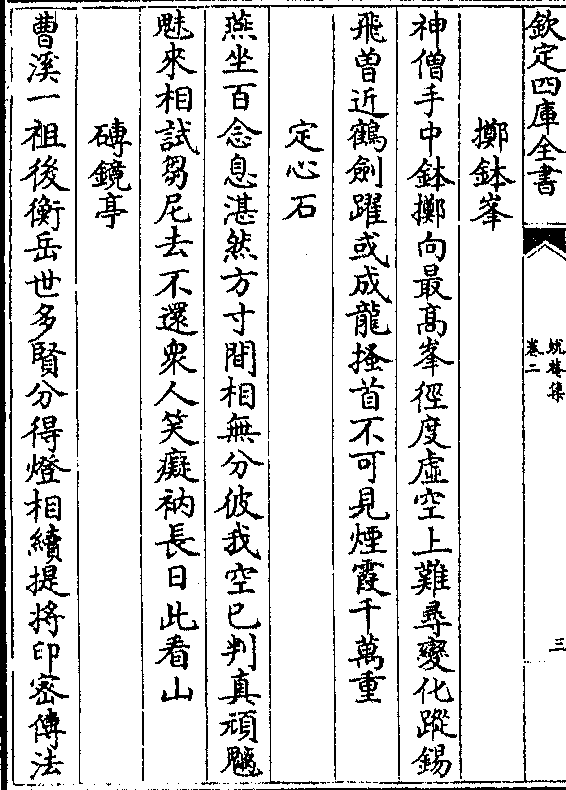 欽定四庫全書
蚖菴集
卷二
三
擲鉢峯
神僧手中鉢擲向最髙峯徑度虛空上難尋變化蹤錫
飛曽近鶴劍躍或成龍搔首不可見煙霞千萬重
定心石
燕坐百念息湛然方寸間相無分彼我空已判真頑魑
魅來相試芻尼去不還衆人笑癡衲長日此看山
磚鏡亭
曹溪一祖後衡岳世多賢分得燈相續提將印宻傳法